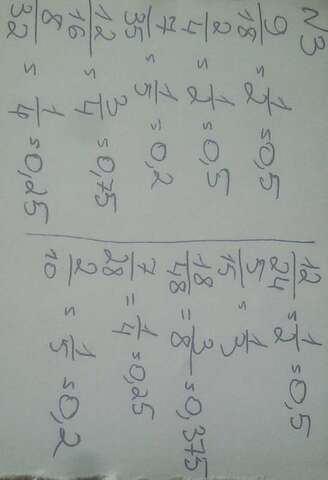 N3
9/18 = 1/2 = 0,5
2/4 = 1/2 = 0,5
7/35 = 1/5 = 0,2
12/16 = 3/4 = 0,75
8/32 = 1/4 = 0,25
12/24 = 1/2 = 0,5
5/15 = 1/3
18/48 = 3/8 = 0,375
7/28 = 1/4 = 0,25
2/10 = 1/5 = 0,2